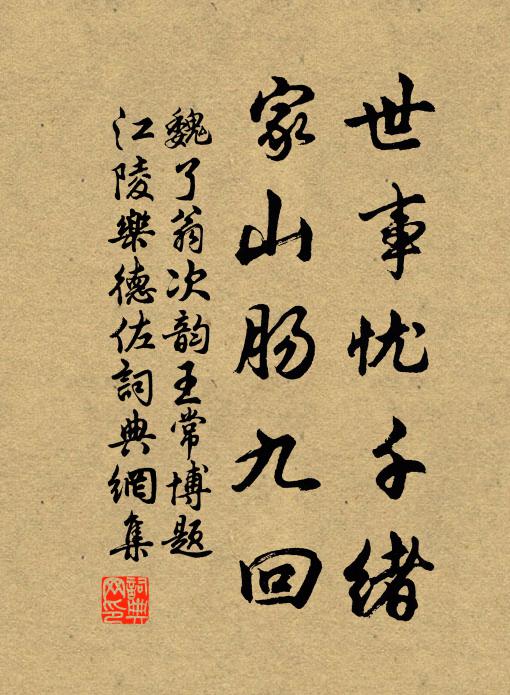 世事忧千绪
家山肠九回
魏了翁次韵王常博题
江陵樂德佐詞典網集
詞典网印